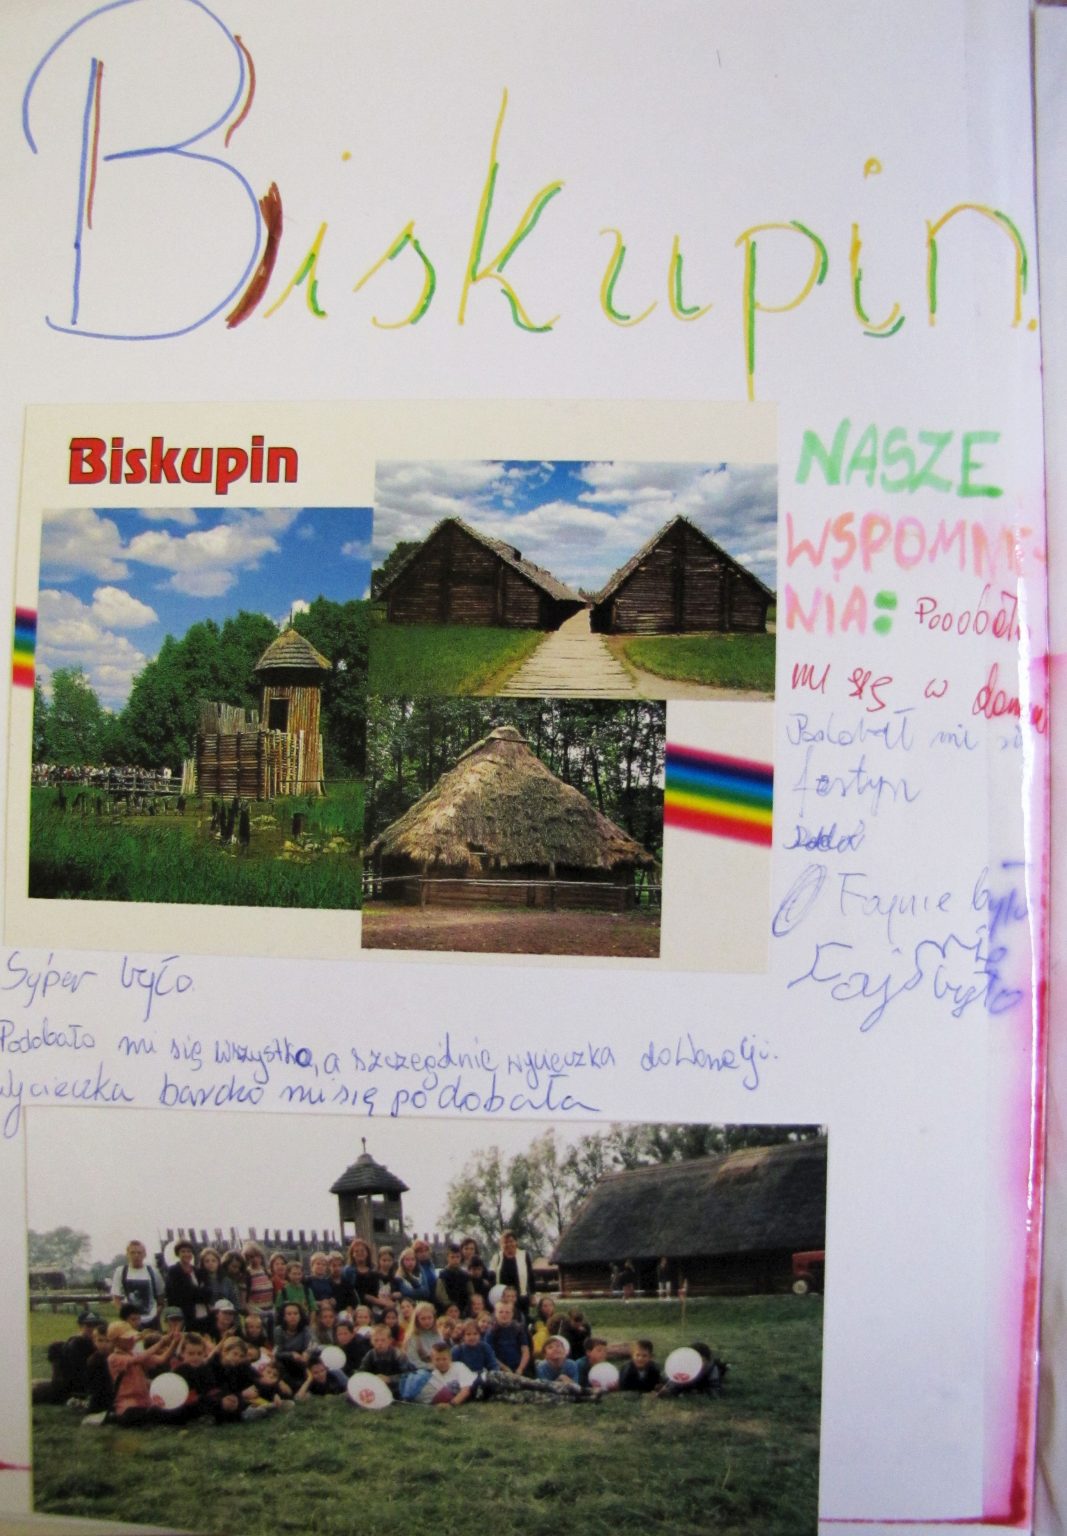 Biskupin.
Biskupin
NASZE
WSPOMNIE-
NIA: Podobał
mi się w
Podobał mi się
festyn
Fajnie było
Fajnie
było
Syper było
Podobało mi się wszystko, a szczególnie wycieczka do Wenecji.
wycieczka bardzo mi się podobała